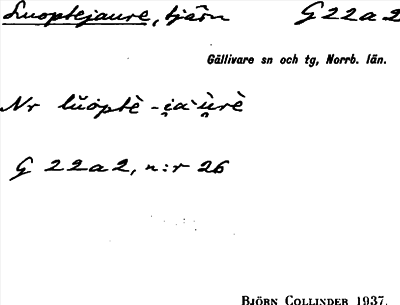 Luoptejaure, tjärn G22a2
Gällivare sn och tg, Norrb. län.
Nr lŭòptè-i̯a`u̯rè
G 22a2, n:r 26
BJÖRN COLLINDER 1937.